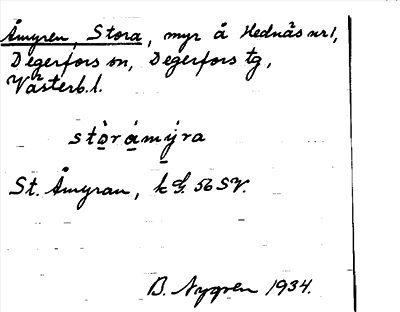 Åmyren, Stora, myr å Hednäs nr 1,
Degerfors sn, Degerfors tg,
Västerb. l.
stòrámýra
St. Åmyran, k G. 56 SV.
B. Nygren 1934.